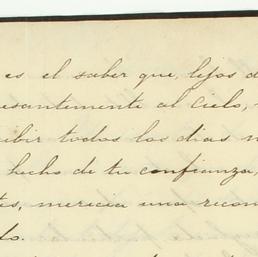 es el saber que, lejos d
esantemente al Cielo,
ibir todos los dias n
hecho de tu confianza,
tes, merecia una recon
lo.